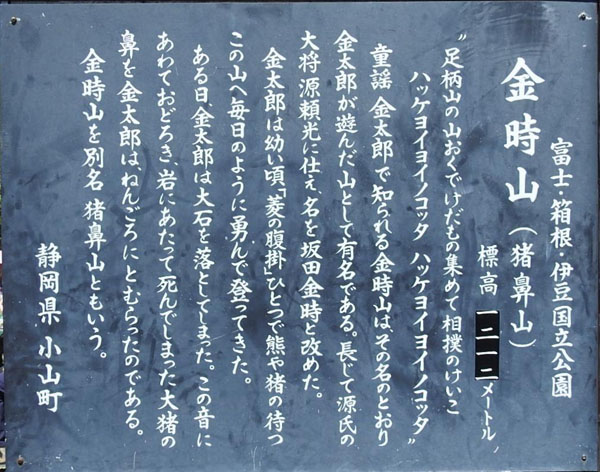 富士・箱根・伊豆国立公園
金時山（猪鼻山）
標高 一二一二メートル
〝足柄山の山おくでけだもの集めて相撲のけいこ
ハッケヨイヨイノコッタ ハッケヨイヨイノコッタ〟
童謡 金太郎 で知られる金時山は、その名のとおり
金太郎が遊んだ山として有名である。長じて源氏の
大将源頼光に仕え、名を坂田金時と改めた。
金太郎は幼い頃、「菱の腹掛」ひとつで熊や猪の待つ
この山へ毎日のように勇んで登ってきた。
ある日、金太郎は大石を落としてしまった。この音に
あわておどろき、岩にあたって死んでしまった大猪の
鼻を金太郎は、ねんごろにとむらったのである。
金時山を別名 猪鼻山ともいう。
静岡県 小山町